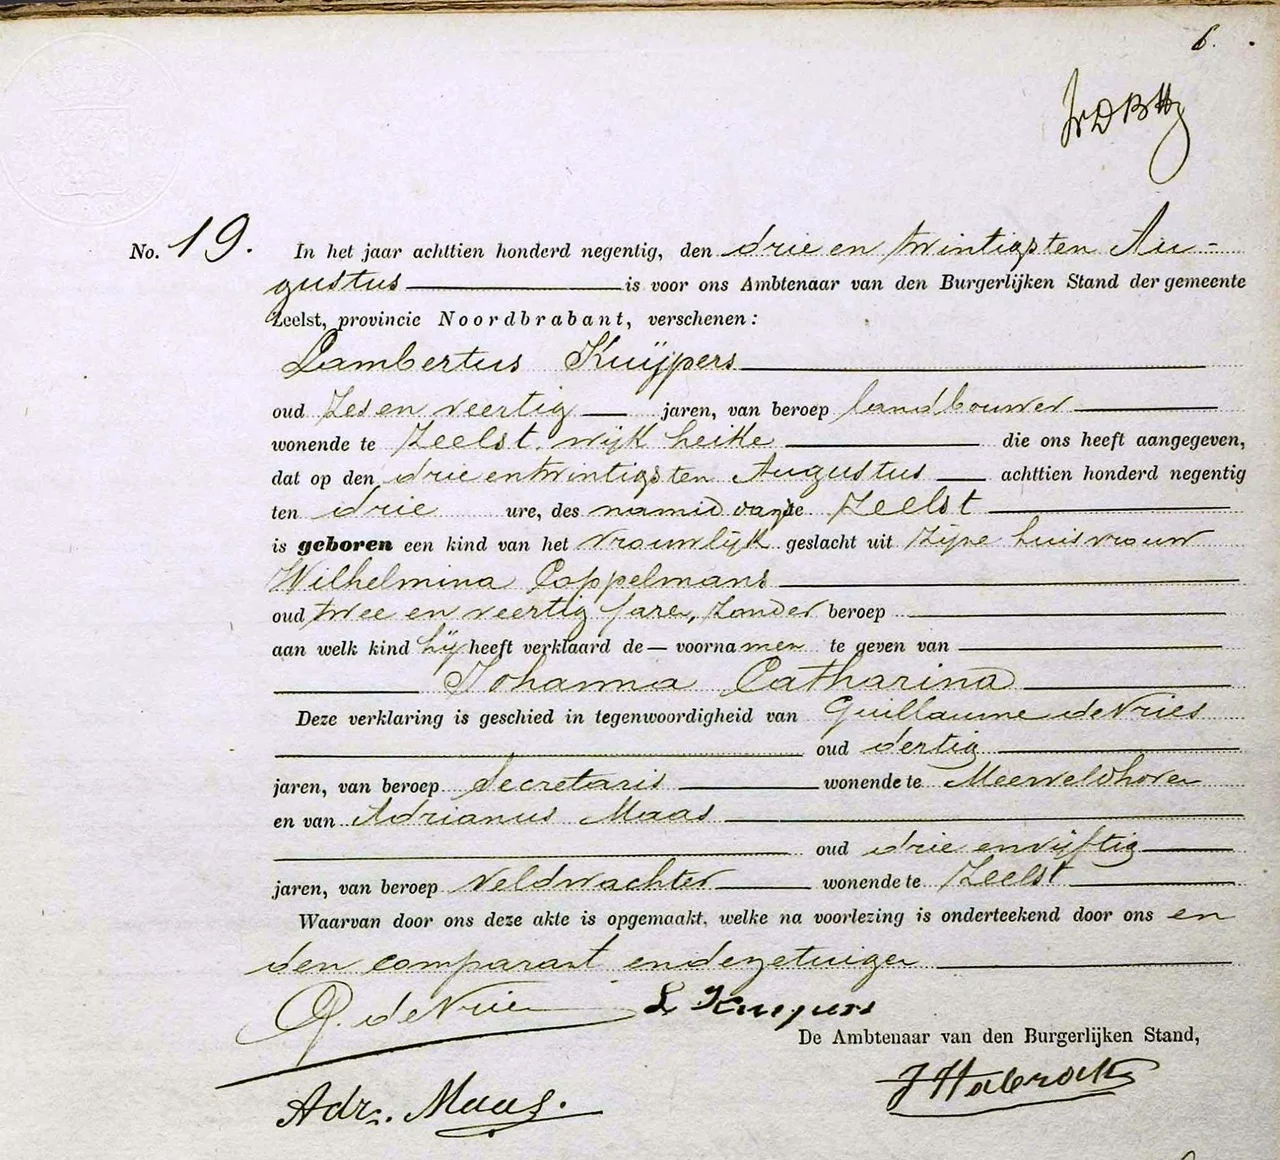 6.
No. 19. In het jaar achttien honderd negentig, den drie en twintigsten Au-
gustus is voor ons Ambtenaar van den Burgerlijken Stand der gemeente
Zeelst, provincie Noordbrabant, verschenen:
Lambertus Kuijpers
oud Zes en veertig jaren, van beroep landbouwer
wonende te Zeelst wijk heike die ons heeft aangegeven,
dat op den drie en twintigsten Augustus achttien honderd negentig
ten drie ure, des namid dags te Zeelst
is geboren een kind van het vrouwlijk geslacht uit Zijne huisvrouw
Wilhelmina Coppelmans
oud twee en veertig Jaren, Zonder beroep
aan welk kind hij heeft verklaard de — voornamen te geven van
Johanna Catharina
Deze verklaring is geschied in tegenwoordigheid van Guillaume de Vries
oud dertig
jaren, van beroep Secretaris wonende te Meerveldhoven
en van Adrianus Maas
oud drie en vijftig
jaren, van beroep Veldwachter wonende te Zeelst
Waarvan door ons deze akte is opgemaakt, welke na voorlezing is onderteekend door ons en
den comparant en de getuigen
G. de Vries L Kuijpers
De Ambtenaar van den Burgerlijken Stand,
Adr. Maas.